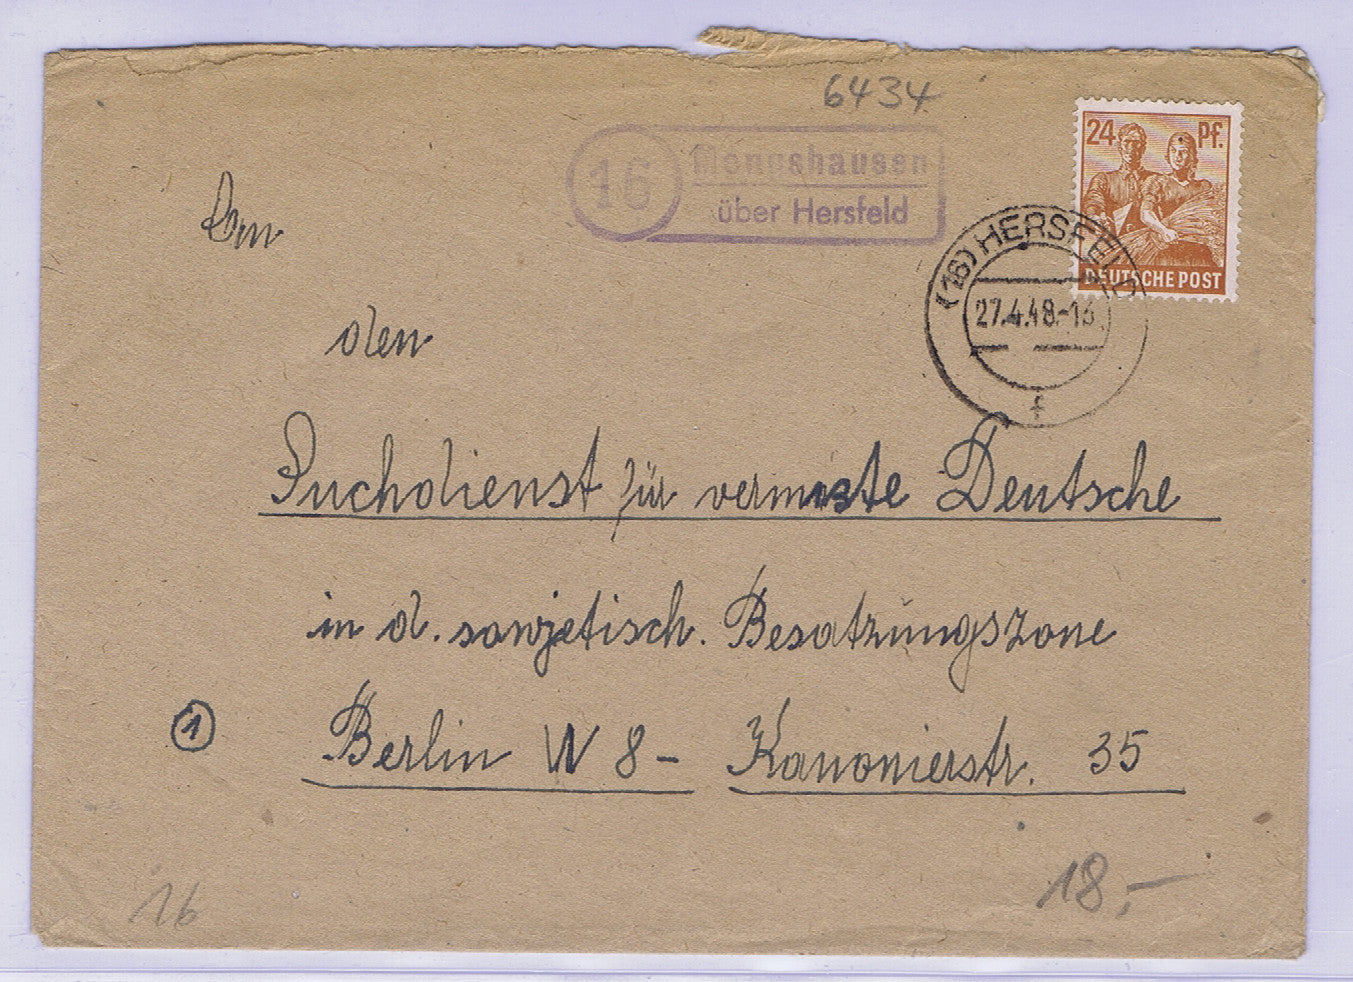 6434
24 Pf.
DEUTSCHE POST
16
Mengshausen
über Hersfeld
(16) HERSFELD
27.4.48.-13
f
den
Suchdienst für vermisste Deutsche
in d. sowjetisch. Besatzungszone
1
Berlin W 8 - Kanonierstr. 35
16
18,-